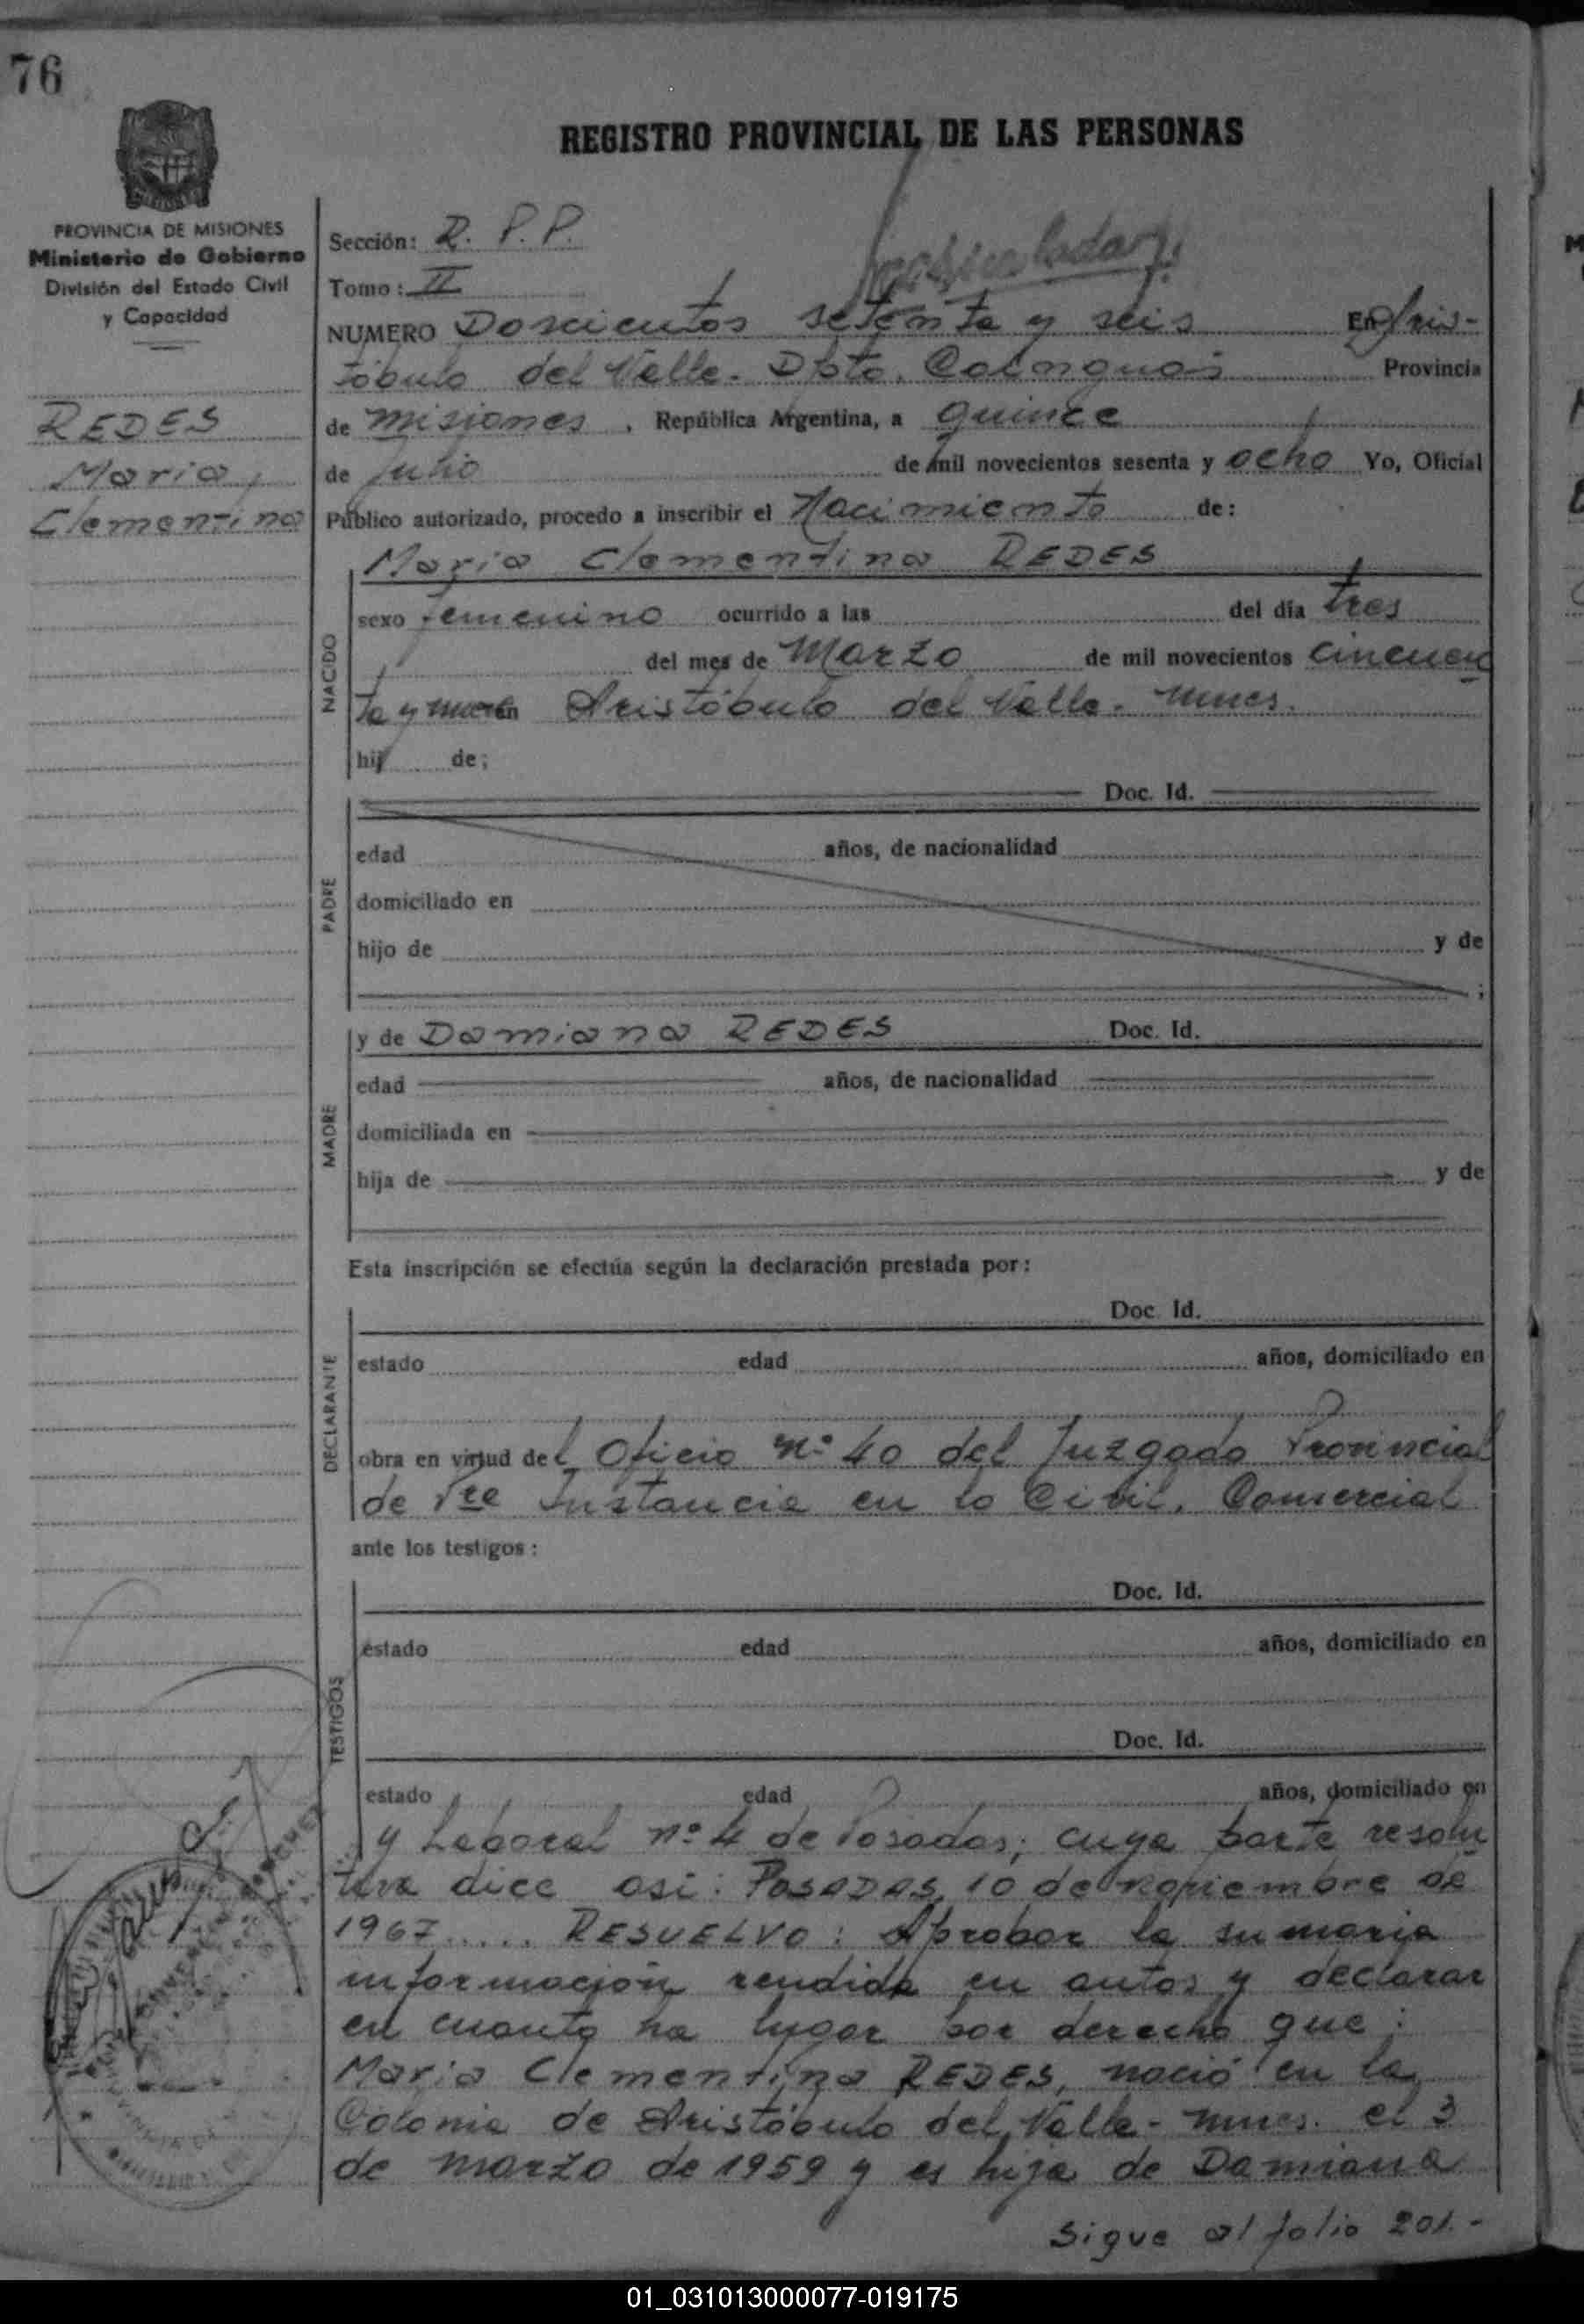 76
REGISTRO PROVINCIAL DE LAS PERSONAS
PROVINCIA DE MISIONES
Ministerio de Gobierno
División del Estado Civil
y Capacidad
REDES
Maria
Clementina
Sección: R. P. P.
Tomo: II
NUMERO Doscientos setenta y seis En Aris-
tóbulo del Valle. Dpto. Cainguas Provincia
de Misiones, República Argentina, a quince
de Julio de mil novecientos sesenta y ocho Yo, Oficial
Público autorizado, procedo a inscribir el Nacimiento de:
Maria Clementina REDES
NACIDO
sexo femenino ocurrido a las del día tres
del mes de Marzo de mil novecientos cincuen
ta y nueve en Aristóbulo del Valle. Mnes.
hij de;
PADRE
Doc. Id.
edad años, de nacionalidad
domiciliado en
hijo de y de
;
MADRE
y de Damiana REDES Doc. Id.
edad años, de nacionalidad
domiciliada en
hija de y de
Esta inscripción se efectúa según la declaración prestada por:
DECLARANTE
Doc. Id.
estado edad años, domiciliado en
obra en virtud del Oficio Nº 40 del Juzgado Provincial
de 1re Instancia en lo Civil, Comercial
ante los testigos:
TESTIGOS
Doc. Id.
estado edad años, domiciliado en
Doc. Id.
estado edad años, domiciliado en
y Laboral nº 4 de Posadas; cuya parte resolu
tiva dice asi: POSADAS, 10 de noviembre de
1967..... RESUELVO: Aprobar la sumaria
información rendida en autos y declarar
en cuanto ha lugar por derecho que:
Maria Clementina REDES, nació en la
Colonia de Aristóbulo del Valle - Mnes. el 3
de marzo de 1959 y es hija de Damiana
Sigue al folio 201.-
01_031013000077-019175